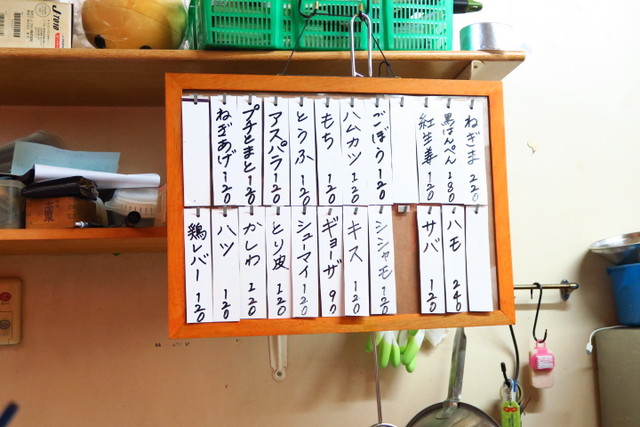 ねぎま 220
黒はんぺん 180
紅生姜 120
ごぼう 120
ハムカツ 120
もち 120
とうふ 120
アスパラ 120
プチとまと 120
ねぎあげ 120
ハモ 240
サバ 120
シシャモ 120
キス 120
ギョーザ 90
シューマイ 120
とり皮 120
かしわ 120
ハツ 120
鶏レバー 120